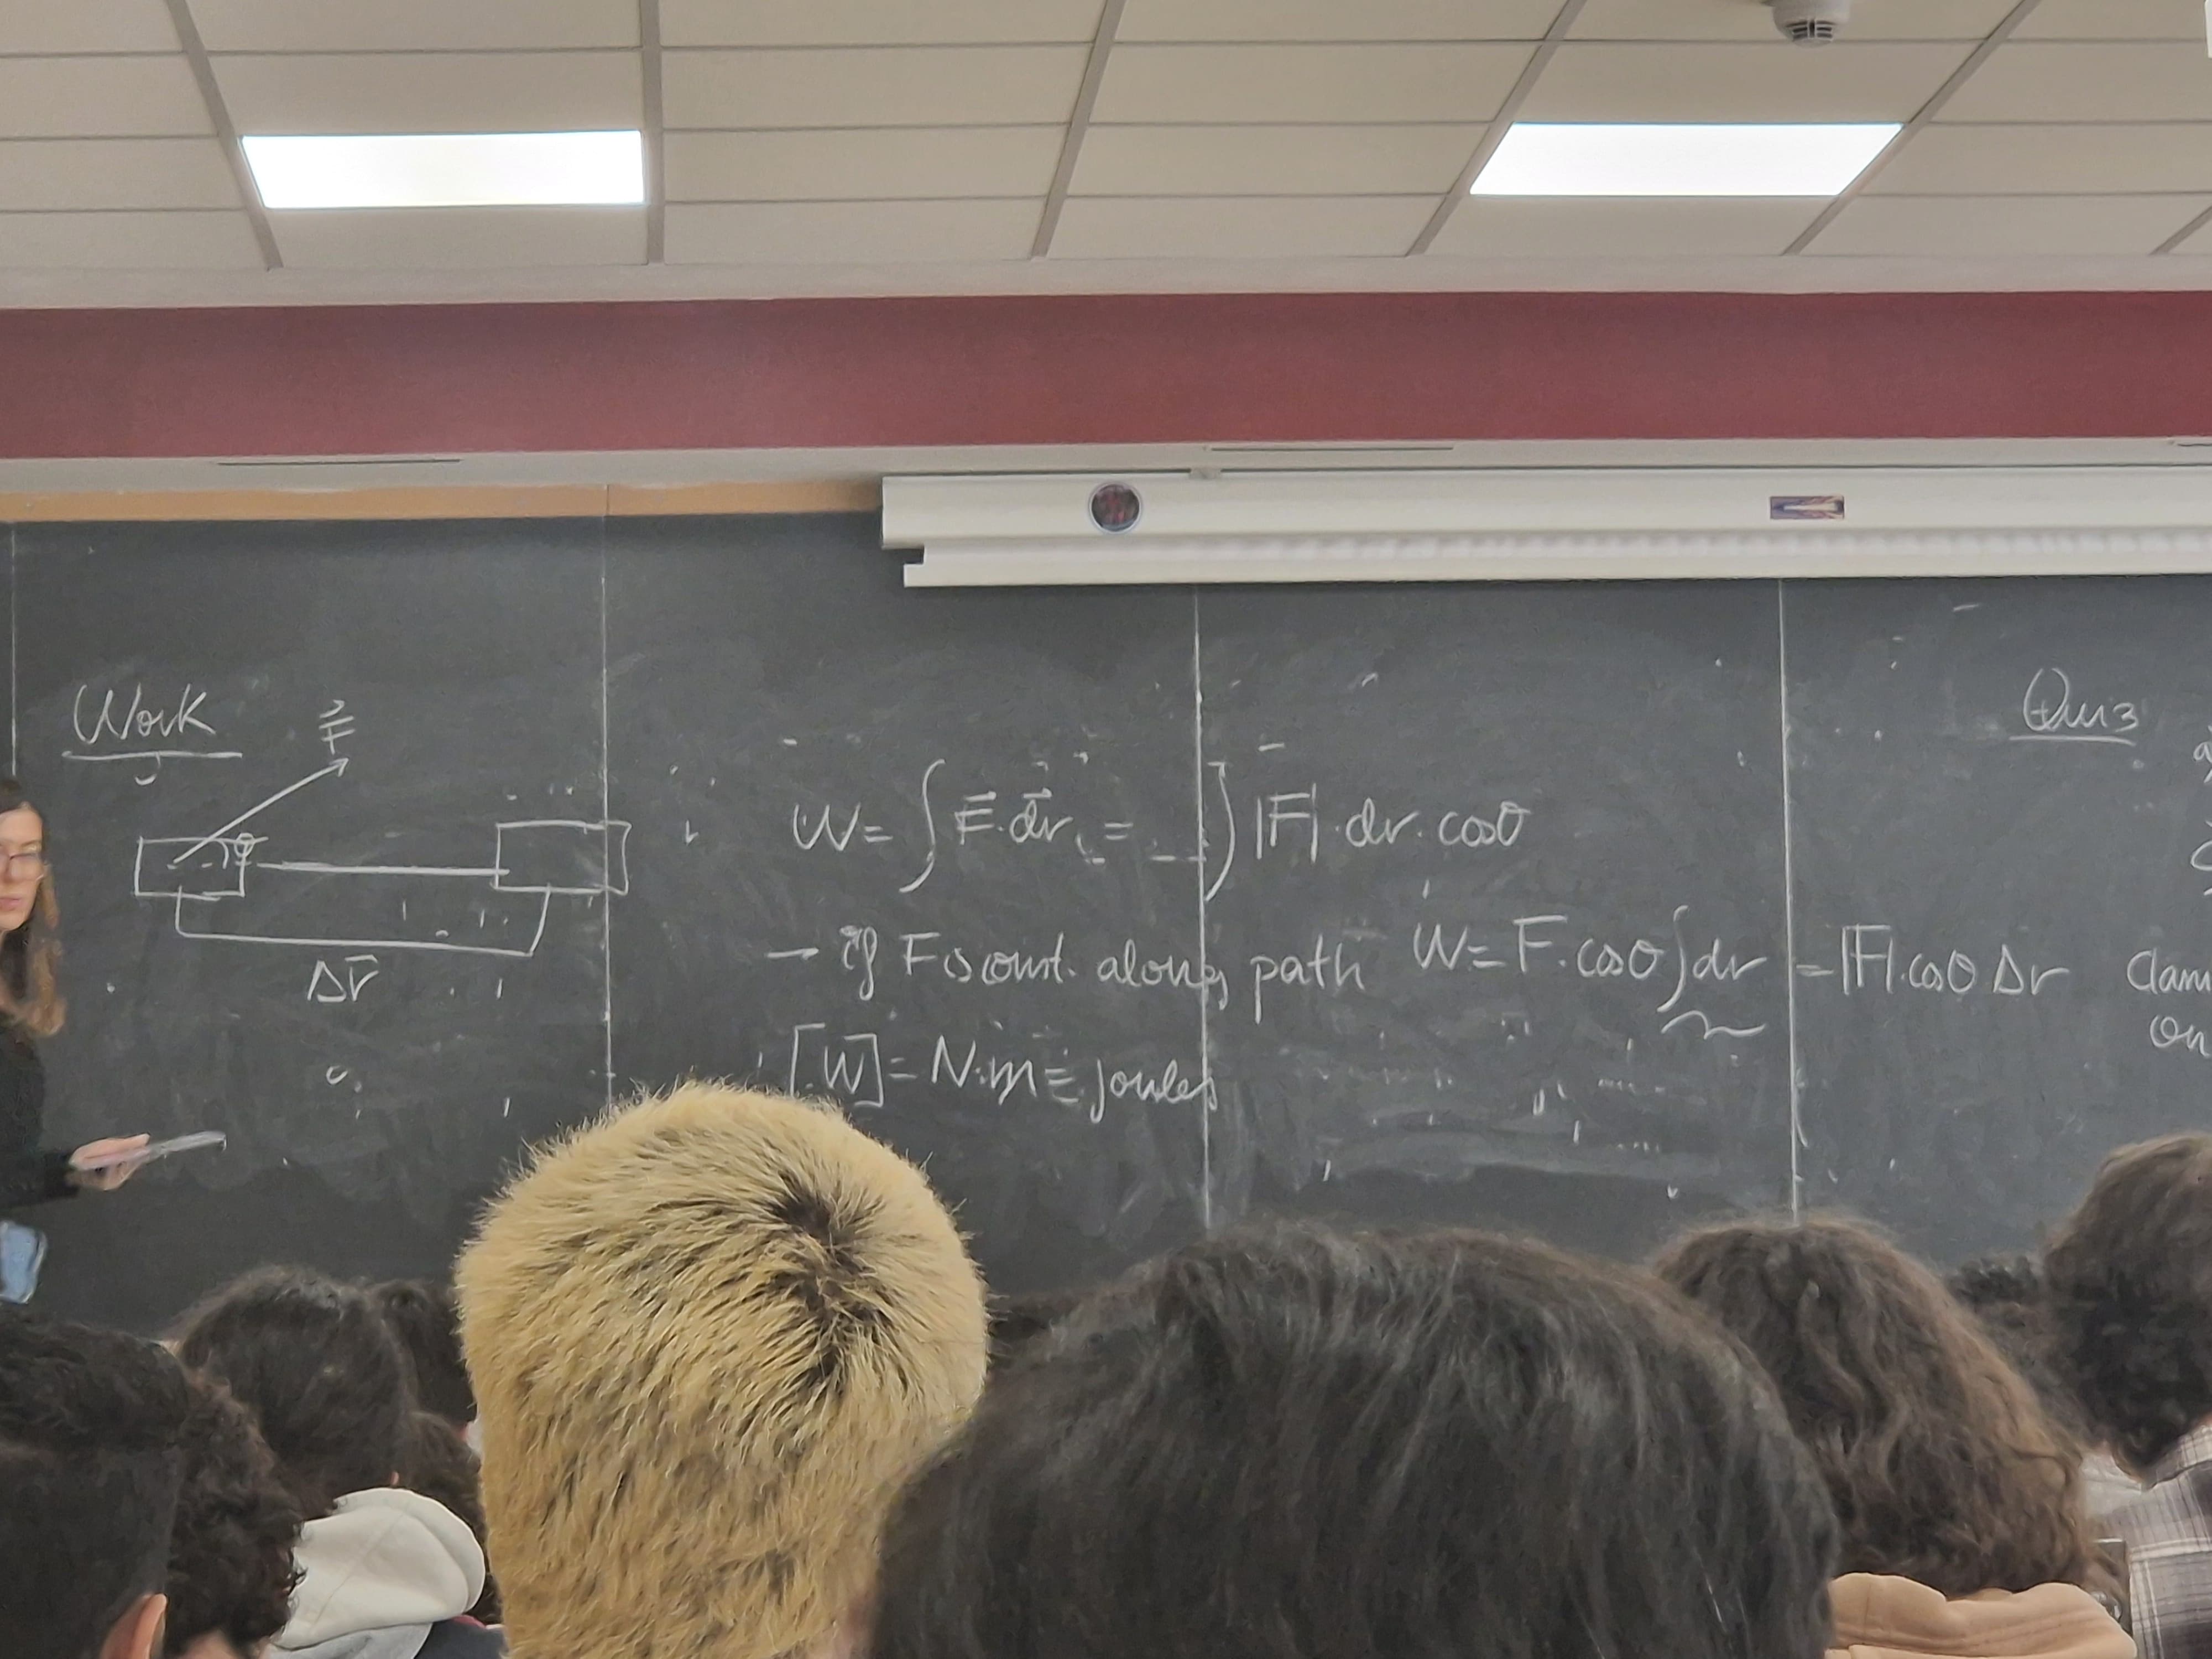 Work
F⃗
θ
Δr⃗
W = ∫ F⃗ · dr⃗ = ∫ |F| · dr · cosθ
→ if F is const. along path W = F · cosθ ∫ dr = |F| · cosθ Δr
[W] = N·m ≡ joules
Quiz
a)
on